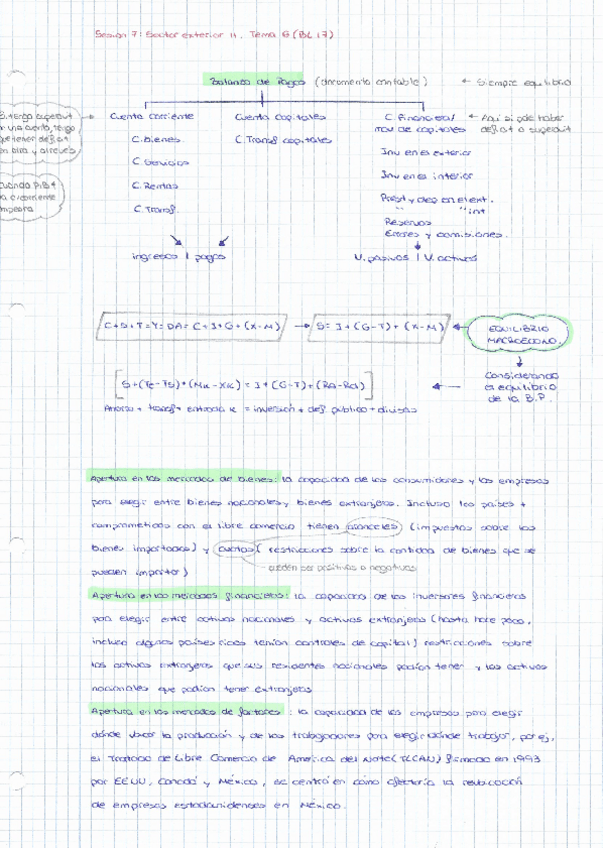 Sesión 7: Sector exterior II. Tema 6 (BL 17)
Balanza de Pagos (documento contable) ← Siempre equilibrio
Si tengo superavit
en una cuenta, tengo
que tener deficit
en otra y al revés
Cuando PIB↑
la c. corriente
empeora
Cuenta corriente
C. bienes
C. Servicios
C. Rentas
C. Transf.
ingresos | pagos
Cuenta capitales
C. Transf. capitales
C. Financiera/
mov de capitales
← Aquí si pde haber
deficit o superavit
Inv en el exterior
Inv en el interior
Prést y dep en el ext.
" " " int
Reservas
Errores y omisiones.
V. pasivos | V. activos
C+S+T=Y=DA= C+I+G+(X-M) → S= I+(G-T)+(X-M) ← EQUILIBRIO
MACROECONO.
Considerando
el equilibrio
de la B.P.
S+(Te-Ts)+(Mk-Xk) = I+(G-T)+(RA-Rd)
Ahorro + transf + entrada K = inversión + def. público + divisas
Apertura en los mercados de bienes: la capacidad de los consumidores y las empresas
para elegir entre bienes nacionales y bienes extranjeros. Incluso los países +
comprometidos con el libre comercio tienen aranceles (impuestos sobre los
bienes importados) y cuotas (restricciones sobre la cantidad de bienes que se
pueden importar)
pueden ser positivas o negativas
Apertura en los mercados financieros: la capacidad de los inversores financieros
para elegir entre activos nacionales y activos extranjeros (hasta hace poco,
incluso algunos países ricos tenían controles de capital) restricciones sobre
los activos extranjeros que sus residentes nacionales podían tener y los activos
nacionales que podían tener extranjeros
Apertura en los mercados de factores: la capacidad de las empresas para elegir
dónde ubicar la producción y de los trabajadores para elegir dónde trabajar, por ej,
el Tratado de Libre Comercio de América del Norte (TLCAN) firmado en 1993
por EEUU, Canadá y México, se centró en cómo afectaría la reubicación
de empresas estadounidenses en México.